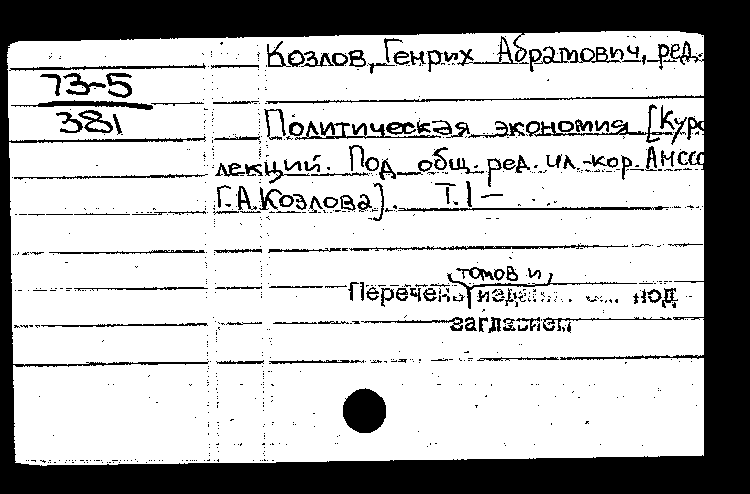 Козлов, Генрих Абрамович, ред.
73-5
381
Политическая экономия [Курс
лекций. Под общ. ред. чл.-кор. АНССС
Г.А.Козлова]. Т.1—
томов и
Перечень под
заглавием